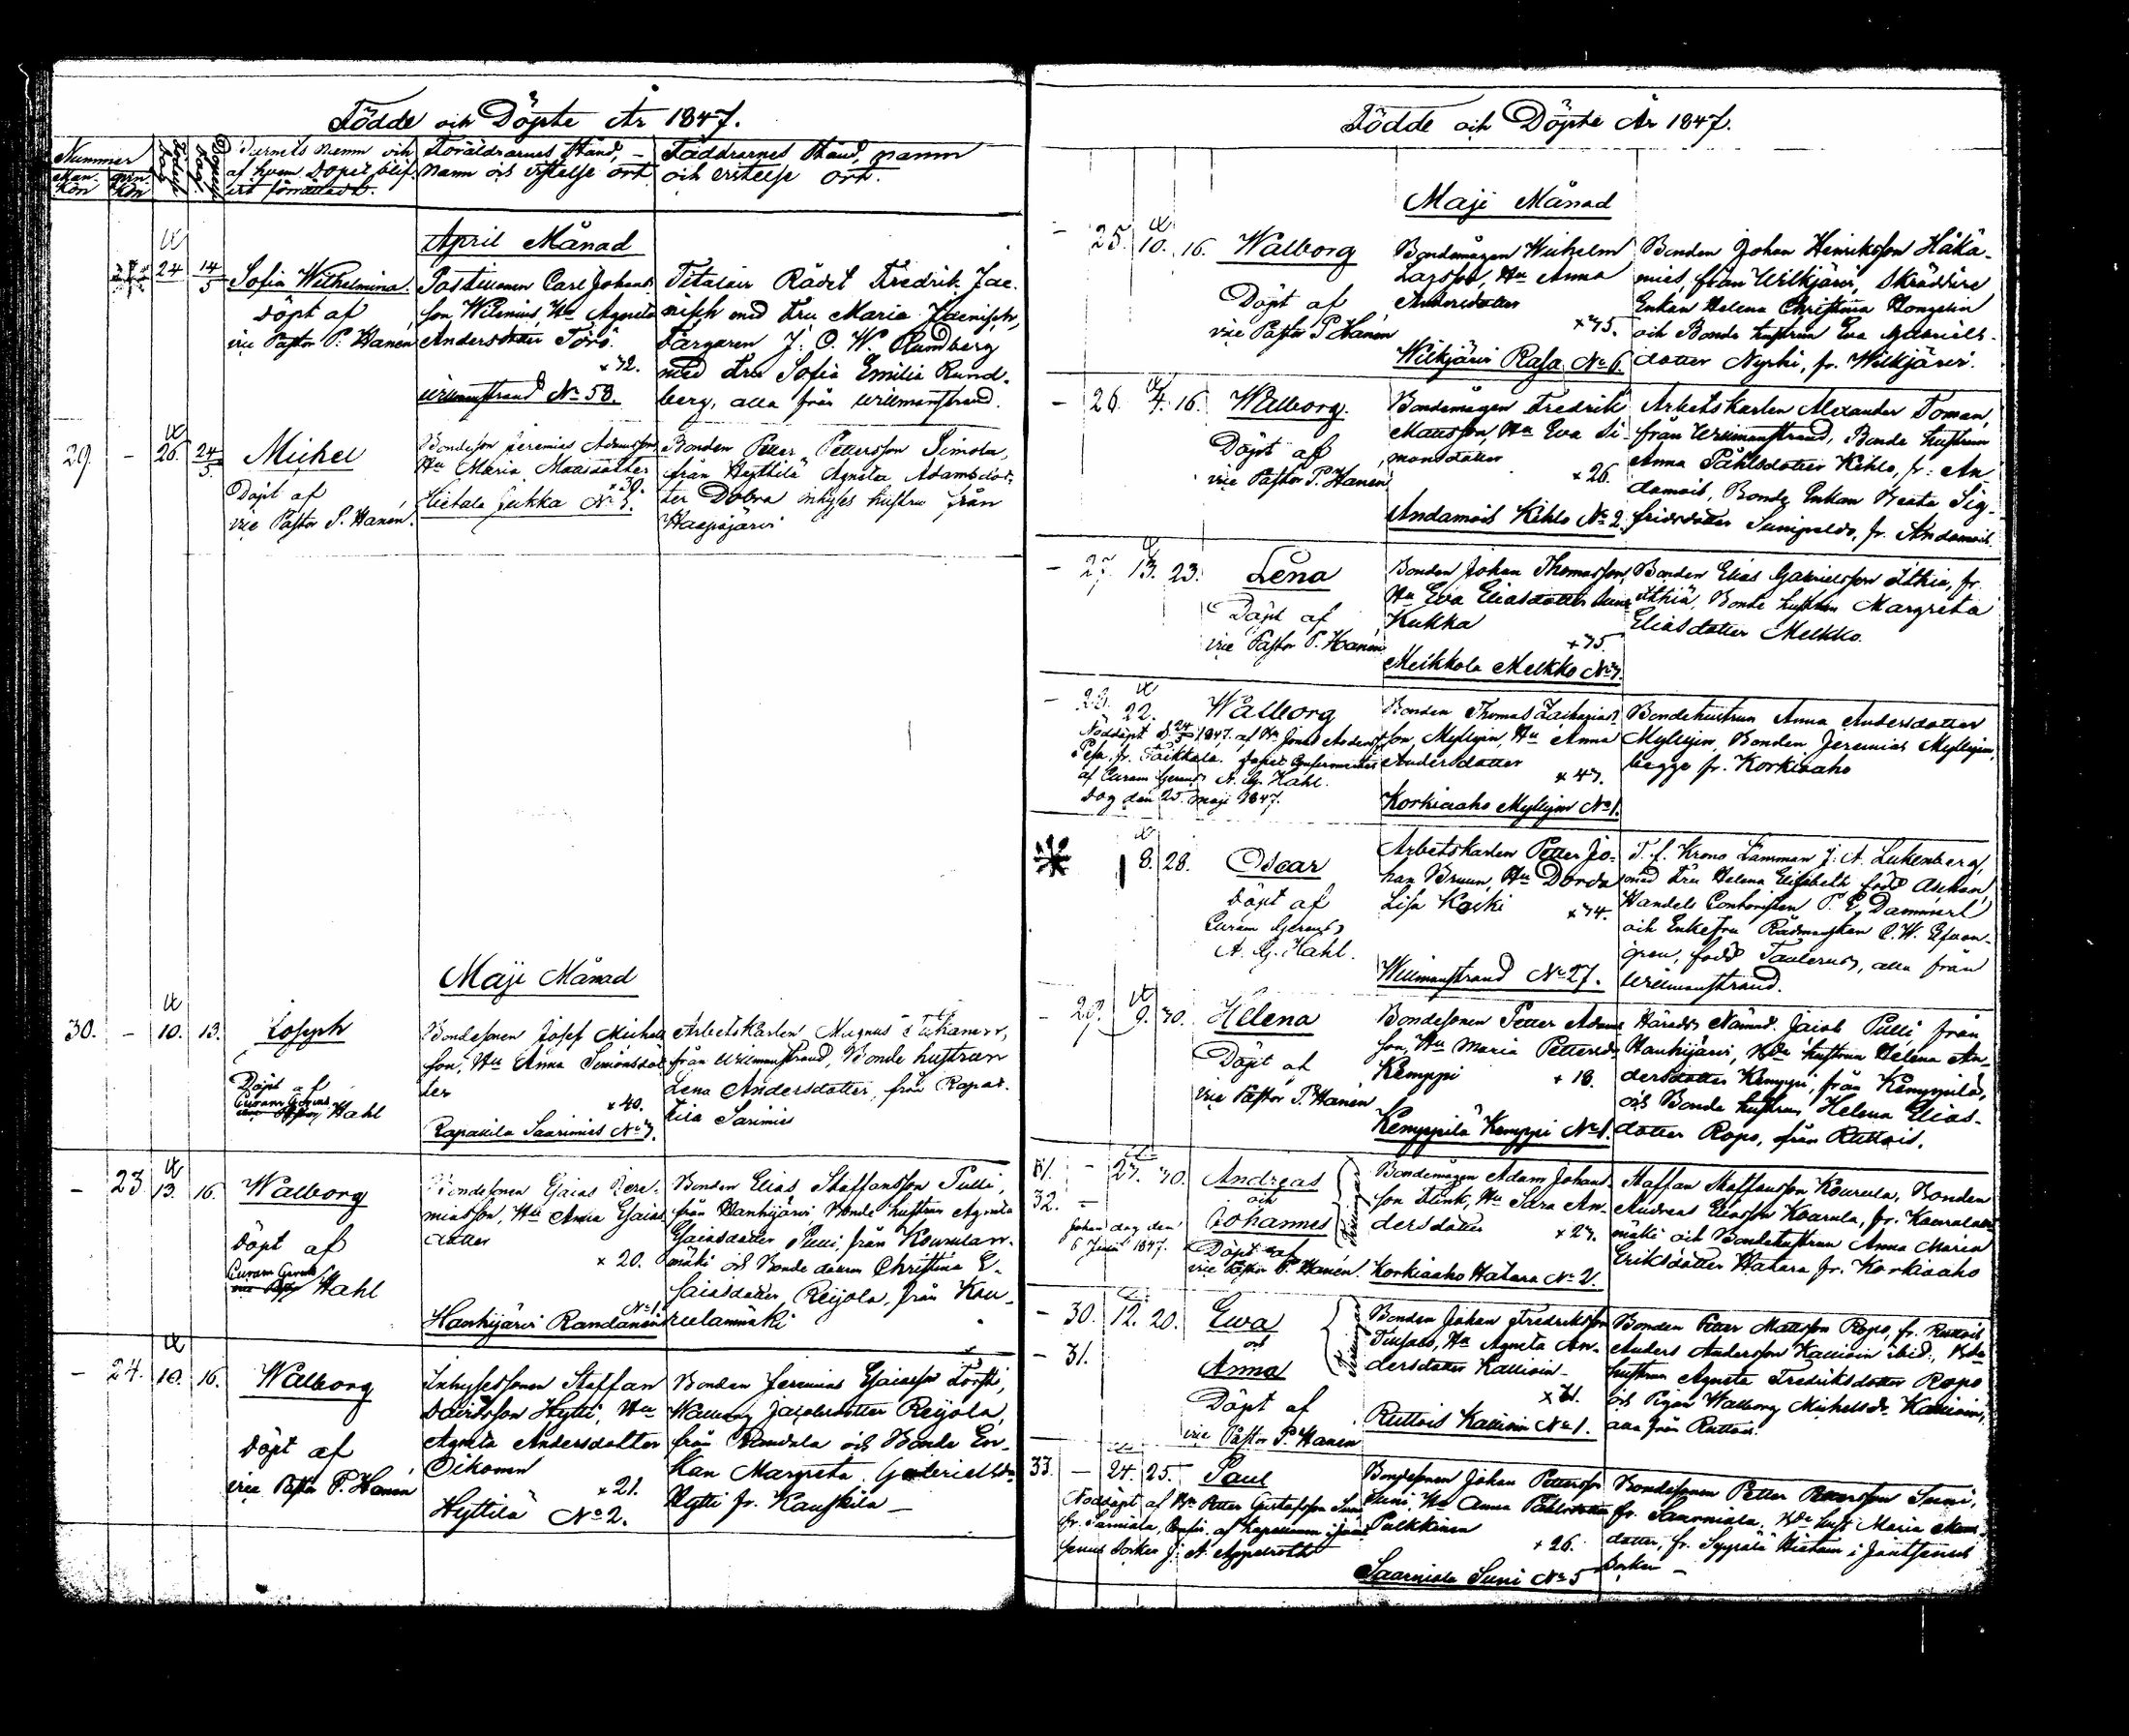 Födde och Döpte År 1847.
Nummer
Man. Kön
Qvin. Kön
Barnets namn och
af hvem Dopet blif-
vit förrättadt.
Föräldrarnes Stånd, -
namn och vistelse ort
Faddrarnes Stånd, namn
och vistelse ort.
April Månad
24 14/5 Sofia Wilhelmina.
Döpt af
vice Pastor P. Hanén
Postiljonen Carl Johans-
son Wilenius, Hu Agneta
Andersdotter Törö.
x 32.
Willmanstrand No 58.
Titulair Rådet Fredrik Jae-
nisch med Fru Maria Jaenisch,
Färgaren J. O. W. Rundberg
med Fru Sofia Emilia Rund-
berg, alla från Willmanstrand.
29. - 26. 24/5 Michel
Döpt af
vice Pastor P. Hanén.
Bondeson Jeremias Adamsson
Hu Maria Matsdotter
x 30.
Hietala Jukka No 3.
Bonden Petter Pettersson Simola,
från Hyttilä, Agneta Adamsdot-
ter Dobra inhyses hustru från
Haapajärvi
Maji Månad
30. - 10. 13. Joseph
Döpt af
Curam Gerens
Hahl
Bondesonen Josef Michels-
son, Hu Anna Simonsdot-
ter
x 40.
Rapattila Saarimies No 3.
Arbetskarlen Magnus
från Willmanstrand, Bonde hustrun
Lena Andersdotter, från Rapat-
tila Sarimies
- 23 13. 16. Walborg
Döpt af
Curam Gerens
Hahl
Bondesonen Esaias Jere-
miasson, Hu Anna Esaias
dotter
x 20.
No 1.
Hanhijärvi Randanen
Bonden Elias Staffansson Pulli,
från Hanhijärvi, Bonde hustrun Agneta
Esaiasdotter Pulli, från Kourulan-
mäki och Bonde dottren Christina E-
saiasdotter Reijola, från Kou-
rulanmäki
- 24. 10. 16. Walborg
Döpt af
vice Pastor P. Hanén
Inhysessonen Staffan
Davidsson Hytti, Hu
Agneta Andersdotter
Oikonen
x 21.
Hyttilä No 2.
Bonden Jeremias Esaiasson Torsti,
Walborg Jacobsdotter Reijola,
från Randala och Bonde En-
kan Margreta Gabrielsdr
Hytti fr. Kauskila -
Födde och Döpte År 1847.
Maji Månad
- 25. 10. 16. Walborg
Döpt af
vice Pastor P Hanén
Bondemågen Wilhelm
Larsson, Hu Anna
Andersdotter
x 35.
Wilkjärvi Rasa No 6.
Bonden Johan Henriksson Häkä-
mies, från Wilkjärvi, Skräddare
Enkan Helena Christina Hongelin
och Bonde hustrun Eva Gabriels-
dotter Nyrhi, fr. Wilkjärvi.
- 26. 4. 16. Walborg.
Döpt af
vice Pastor P. Hanén
Bondemågen Fredrik
Matsson, Hu Eva Si-
monsdotter
x 26.
Andamois Kihlo No 2.
Arbetskarlen Alexander Toman,
från Willmanstrand, Bonde hustrun
Anna Påhlsdotter Kihlo, fr. An-
damois, Bonde Enkan Beata Sig-
fridsdotter Sunipeldo, fr. Andamois.
- 27. 13. 23. Lena
Döpt af
vice Pastor P. Hanén
Bonden Johan Thomasson,
Hu Eva Eliasdotter
Kukka
x 35.
Meikkola Melkko No 3.
Bonden Elias Gabrielsson Ithiä, fr.
Ithiä, Bonde hustrun Margreta
Eliasdotter Melkko.
- 28. 22. Walborg
Nöddöpt d. 24/5 1847. af Bn Jonas Andersson
Pesu, fr. Taikkala. Dopet Confirmerades
af Curam Gerens A. G. Hahl.
Dag den 25 Maji 1847.
Bonden Thomas Zacharias-
son Myllyin, Hu Anna
Andersdotter
x 43.
Korkiaaho Myllyin No 1.
Bondehustrun Anna Andersdotter
Myllyin, Bonden Jeremias Myllyin,
begge fr. Korkiaaho
8. 28. Oscar
Döpt af
Curam Gerens
A. G. Hahl.
Arbetskarlen Petter Jo-
han Bruun, Hu Dorda
Lisa Koski
x 34.
Willmanstrand No 27.
T. f. Krono Länsman J. A. Lukenberg,
med Fru Helena Elisabeth född Aschan,
Handels Contoristen P. E. Dammert
och Enkefru Rådmanskan C. W. Efven-
gren, född Taulerus, alla från
Willmanstrand.
- 29. 9. 30. Helena
Döpt af
vice Pastor P. Hanén
Bondesonen Petter Adams
son, Hu Maria Pettersdr
Kemppi
+ 18.
Kemppilä Kemppi No 1.
Härads Nämnd. Jacob Pulli, från
Hanhijärvi, Bde hustrun Helena An-
dersdotter Kemppi, från Kemppilä,
och Bonde hustrun Helena Elias-
dotter Ropo, från Ruttois.
31. - 27. 30. Andreas
32. - och
Johannes
Tvillingar
Johan dog den
6 Junii 1847.
Döpt af
vice Pastor P. Hanén.
Bondemågen Adam Johans-
son Flink, Hu Sara An-
dersdotter
x 23.
Korkiaaho Hatara No 2.
Staffan Staffansson Kourula, Bonden
Andreas Eliasson Kourula, fr. Kourulan-
mäki och Bondehustrun Anna Maria
Eriksdotter Hatara fr. Korkiaaho
- 30. 12. 20. Ewa
och
- 31. Anna
Tvillingar
Döpt af
vice Pastor P. Hanén
Bonden Johan Fredriksson
Hu Agneta An-
dersdotter Kallioin
x 31.
Ruttois Kallioin No 1.
Bonden Petter Mattsson Ropo, fr. Ruttois
Anders Andersson Kallioin ibid:, Bde
hustrun Agneta Fredriksdotter Ropo
och Pigan Walborg Michelsdr Kallioin,
alla från Ruttois.
33. - 24. 25. Paul
Nöddöpt af Bn Petter Gustafsson Suni
fr. Sarniala, Confir. af Kapellanen i Joutsenus
Socken J. A. Appelroth
Bondesonen Johan Pettersson
Suni, Hu Anna Påhlsdotter
Pulkkinen
+ 26.
Saarniala Suni No 5
Bondesonen Petter Pettersson Suni,
fr. Saarniala, Bde hust. Maria
dotter, fr. i Joutsenus
Socken -